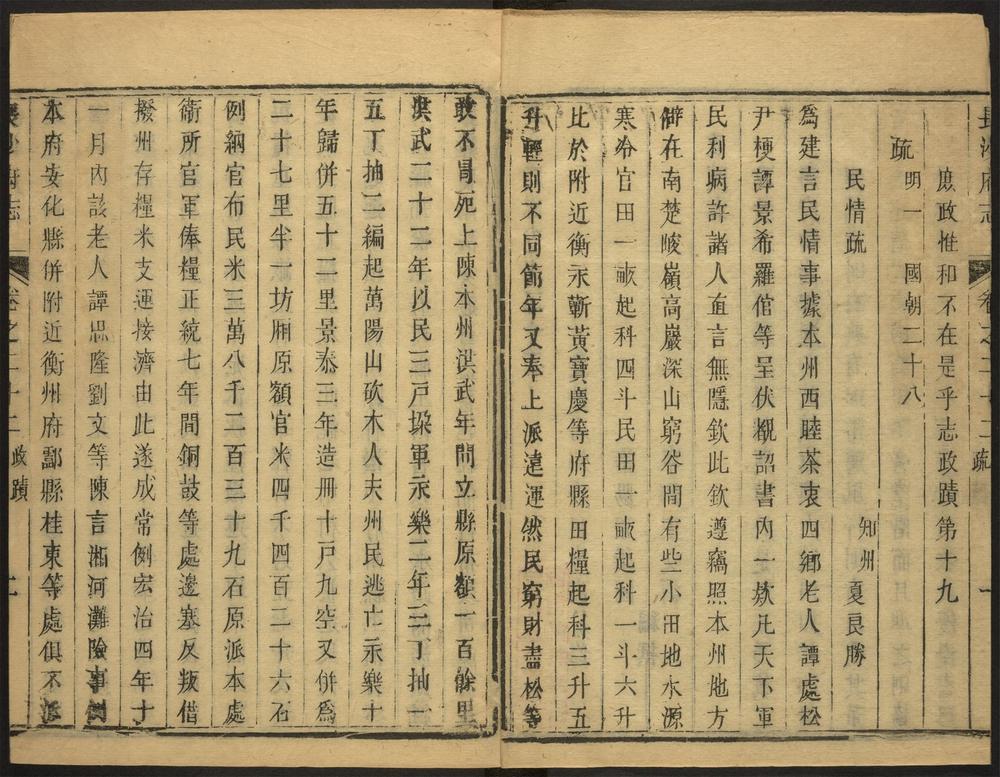 長沙府志 卷之二十二 疏 一
庶政惟和不在是乎志政蹟第十九
明一 國朝二十八
疏
民情疏 知州 夏良勝
為建言民情事據本州西睦茶衷四鄉老人譚處松
尹梗譚景希羅倌等呈伏覩詔書內一欵凡天下軍
民利病許諸人直言無隱欽此欽遵竊照本州地方
僻在南楚峻嶺高巖深山窮谷間有些小田地水源
寒冷官田一畝起科四斗民田一畝起科一斗六升
比於附近衡永蘄黃寶慶等府縣田糧起科三升五
升輕則不同節年又奉上派遠運然民窮財盡松等
敢不冒死上陳本州洪武年間立縣原額一百餘里
洪武二十二年以民三戶垜軍永樂二年三丁抽一
五丁抽二編起萬陽山砍木人夫州民逃亡永樂十
年歸併五十二里景泰三年造冊十戶九空又併為
二十七里半一坊廂原額官米四千四百二十六石
例納官布民米三萬八千二百三十九石原派本處
衛所官軍俸糧正統七年間銅鼓等處邊塞反叛借
撥州存糧米支運接濟由此遂成常例宏治四年十
一月內該老人譚思隆劉文等陳言湘河灘險事
本府安化縣併附近衡州府酃縣桂東等處俱不
長沙府志 卷之二十二 政蹟 二